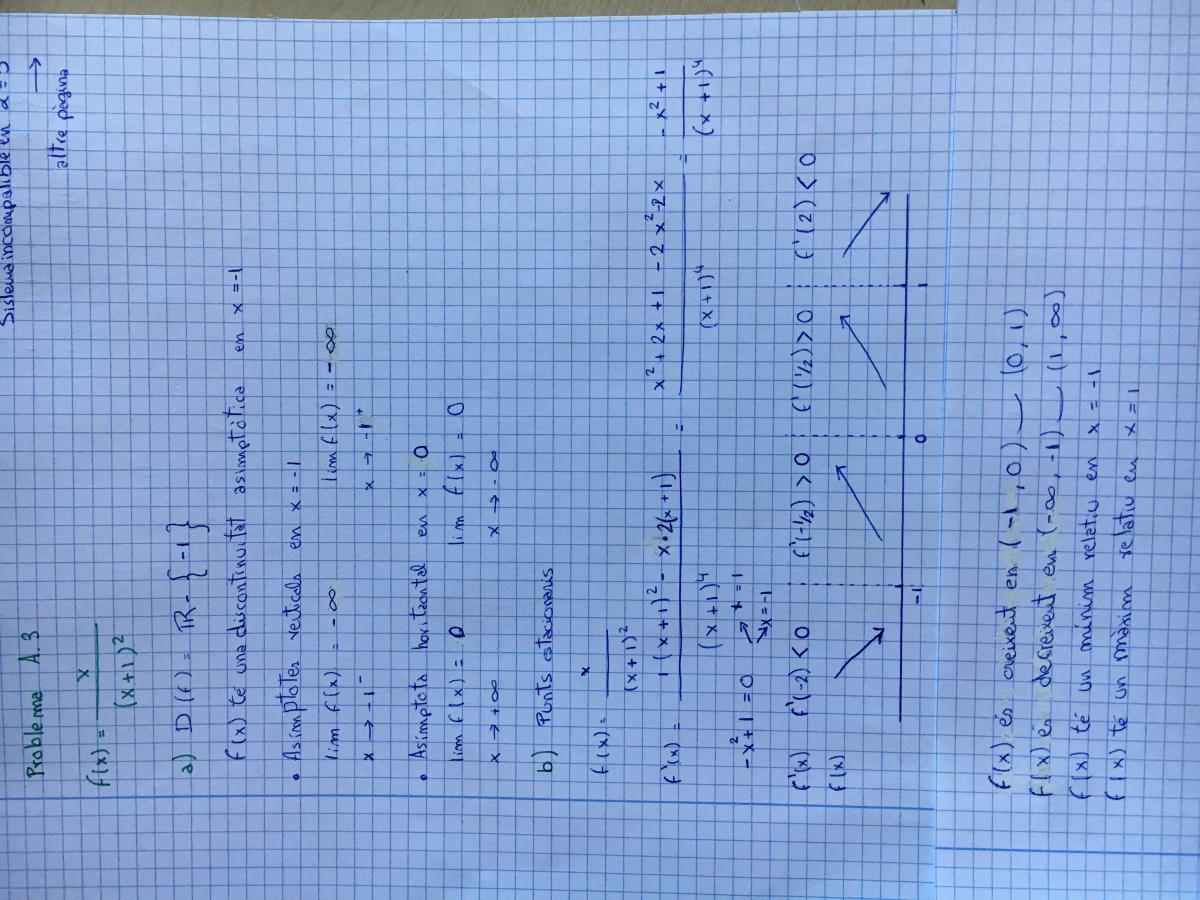 Sistema incompatible en a = 5
→
altre pàgina
Problema A.3
f(x) = x / (x+1)²
a) D(f) = ℝ - { -1 }
f(x) té una discontinuïtat asimptòtica en x = -1
• Asímptotes verticals en x = -1
lim f(x) = -∞   lim f(x) = -∞
x → -1⁻   x → -1⁺
• Asímptota horitzontal en x = 0
lim f(x) = 0   lim f(x) = 0
x → +∞   x → -∞
b) Punts estacionaris
f(x) = x / (x+1)²
f'(x) = (1(x+1)² - x·2(x+1)) / (x+1)⁴ = (x² + 2x + 1 - 2x² - 2x) / (x+1)⁴ = (-x² + 1) / (x+1)⁴
-x² + 1 = 0 → x = 1
→ x = -1
f'(x)   f'(-2) < 0   f'(-1/2) > 0   f'(1/2) > 0   f'(2) < 0
f(x)   ↘   ↗   ↗   ↘
-1   0   1
f(x) és creixent en (-1, 0) — (0, 1)
f(x) és decreixent en (-∞, -1) — (1, ∞)
f(x) té un mínim relatiu en x = -1
f(x) té un màxim relatiu en x = 1